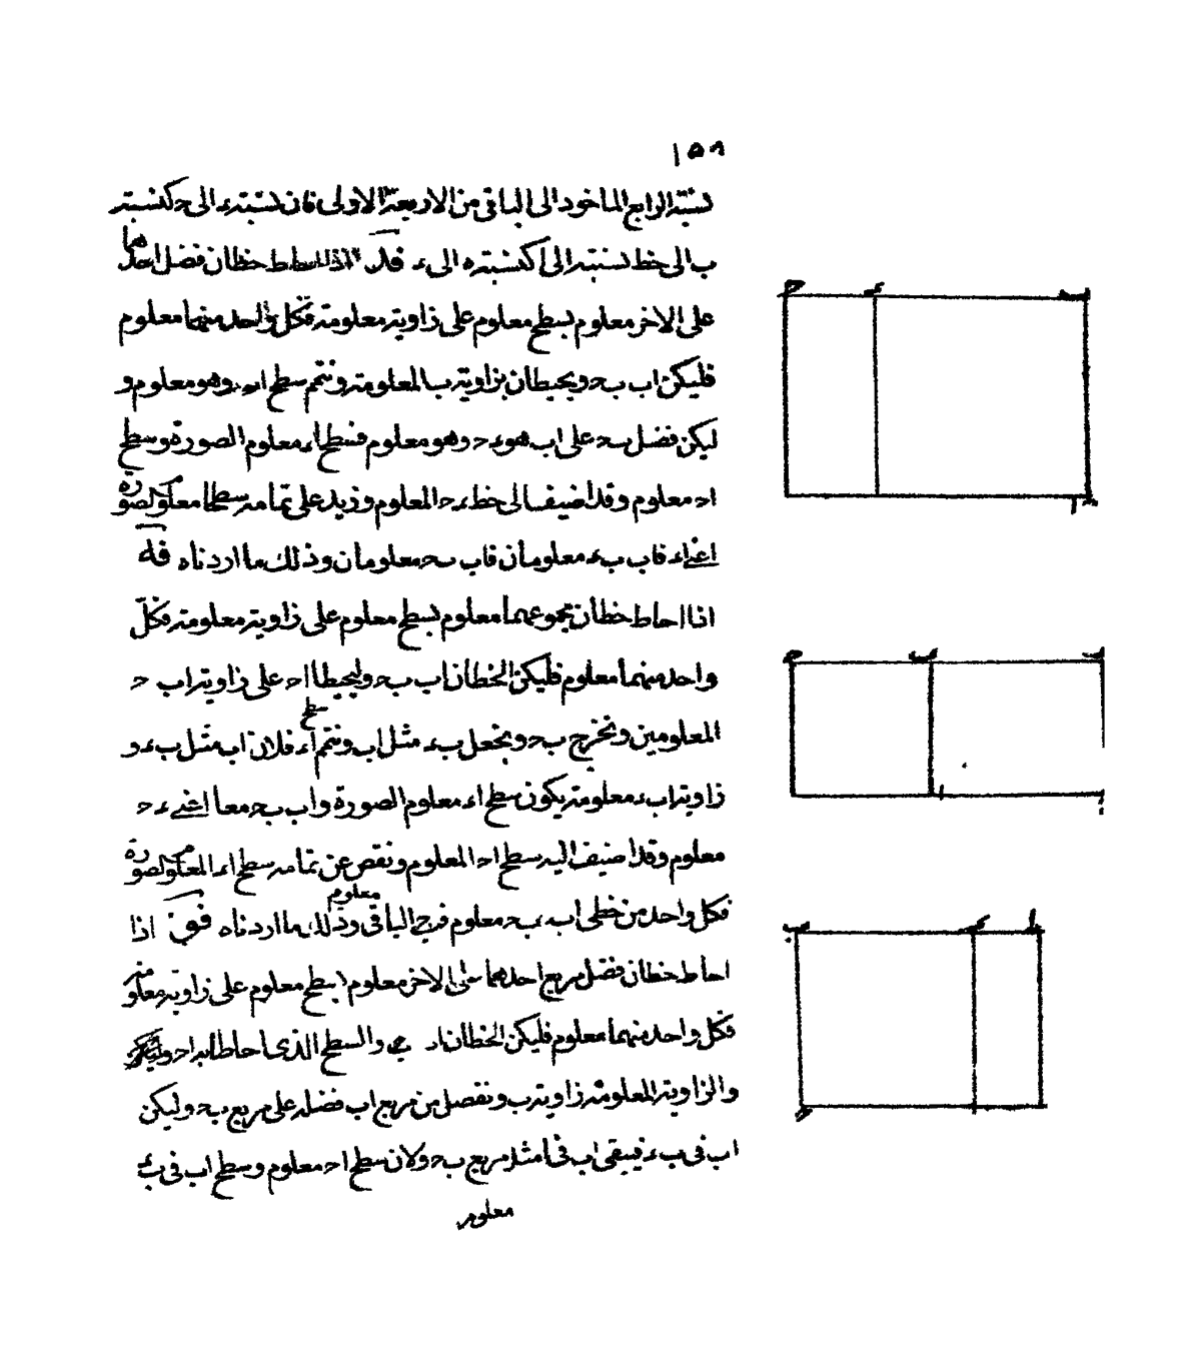 ١٥٨
نسبة الرابع الماخوذ الى الباقى من الاربعة الاولى فان نسبة ء الى ح كنسبة
ب الى خط نسبته الى ا كنسبة ه الى ء فد اذا احاط خطان فضل احدهما
على الاخر معلوم بسطح معلوم على زاوية معلومة فكل واحد منهما معلوم
فليكن اب ب ح ويحيطان بزاوية ب المعلومة ونتم سطح ا ح وهو معلوم و
ليكن فضل ب ح على اب هو ء ح وهو معلوم فسطح ا ء معلوم الصورة وسطح
ا ح معلوم وقد اضيف الى خط ء ح المعلوم وزيد على تمامه سطحا معلوم الصورة
اعنى ا ء فاب ب ء معلومان فاب ب ح معلومان وذلك ما اردناه فه
اذا احاط خطان مجموعهما معلوم بسطح معلوم على زاوية معلومة فكل
واحد منهما معلوم فليكن الخطان اب ب ح وليحيطا ا ح على زاوية اب ح
المعلومين ونخرج ب ح ونجعل ب ء مثل اب ونتم سطح ا ء فلان اب مثل ب ء و
زاوية اب ء معلومة يكون سطح ا ء معلوم الصورة واب ب ح معا اعنى ء ح
معلوم وقد اضيف اليه سطح ا ح المعلوم ونقص عن تمامه سطح ا ء المعلوم الصورة
فكل واحد من خطى اب ب ح معلوم فرج الباقى معلوم وذلك ما اردناه فو اذا
احاط خطان فضل مربع احدهما على الاخر معلوم بسطح معلوم على زاوية معلومة
فكل واحد منهما معلوم فليكن الخطان اب ب ح والسطح الذى احاطا به ا ح وليكن
والزاوية المعلومة زاوية ب ونفصل من مربع اب فضله على مربع ب ح وليكن
اب فى ب ء فيبقى اب فى ا ء مثل مربع ب ح ولان سطح ا ح معلوم وسطح اب فى ب ء
معلوم